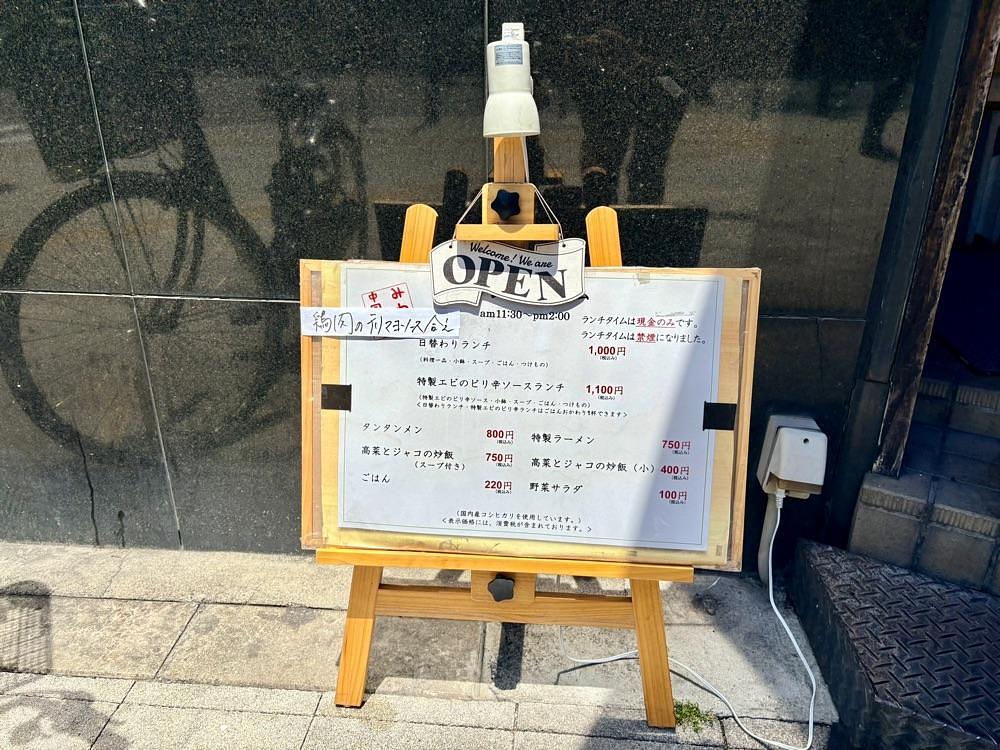 Welcome! We are
OPEN
am11:30～pm2:00
ランチタイムは現金のみです。
ランチタイムは禁煙になりました。
鶏肉のテリマヨソース合え
日替わりランチ 1,000円
(税込み)
(料理一品・小鉢・スープ・ごはん・つけもの)
特製エビのピリ辛ソースランチ 1,100円
(税込み)
(特製エビのピリ辛ソース・小鉢・スープ・ごはん・つけもの)
<日替わりランチ・特製エビのピリ辛ランチはごはんおかわり1杯できます>
タンタンメン 800円
(税込み)
特製ラーメン 750円
(税込み)
高菜とジャコの炒飯 750円
(スープ付き) (税込み)
高菜とジャコの炒飯(小) 400円
(税込み)
ごはん 220円
(税込み)
野菜サラダ 100円
(税込み)
(国内産コシヒカリを使用しています。)
<表示価格には、消費税が含まれております。>